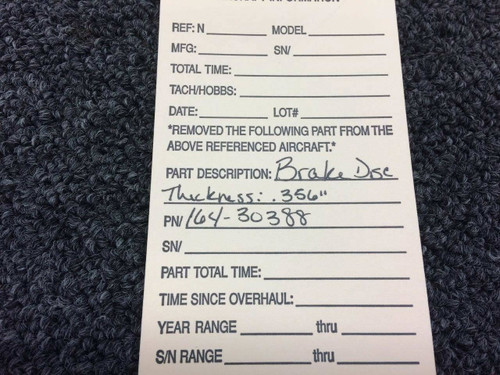 REF: N MODEL
MFG: SN/
TOTAL TIME:
TACH/HOBBS:
DATE: LOT#
*REMOVED THE FOLLOWING PART FROM THE
ABOVE REFERENCED AIRCRAFT.*
PART DESCRIPTION: Brake Disc
Thickness: .356"
PN/ 164-30388
SN/
PART TOTAL TIME:
TIME SINCE OVERHAUL:
YEAR RANGE thru
S/N RANGE thru